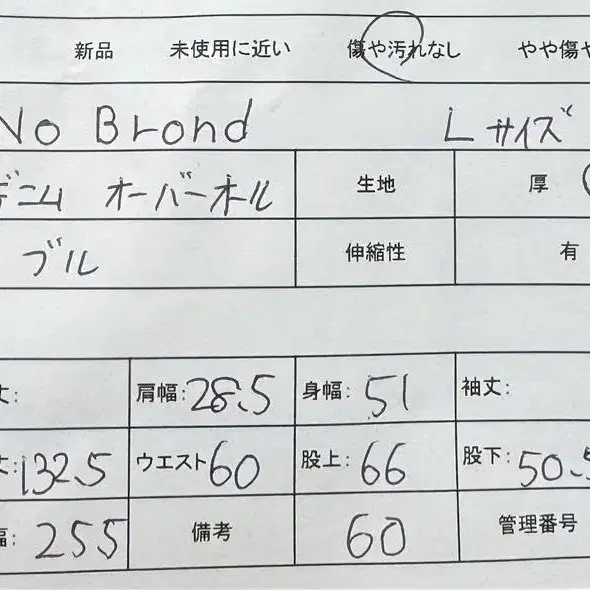 新品 未使用に近い 傷や汚れなし やや傷や
No Brond Lサイズ
デニム オーバーオール 生地 厚
ブル 伸縮性 有
丈: 肩幅:28.5 身幅:51 袖丈:
丈:132.5 ウエスト60 股上:66 股下:50.5
幅:255 備考 60 管理番号